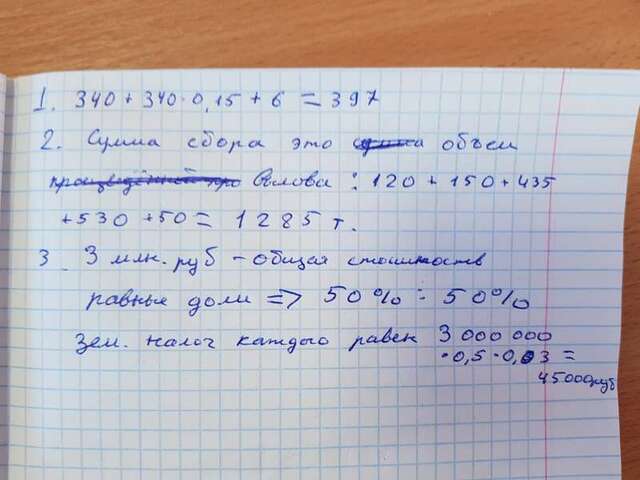 1. 340 + 340 · 0,15 + 6 = 397
2. Сумма сбора это объем
вылова : 120 + 150 + 435
+ 530 + 50 = 1285 т.
3. 3 млн. руб – общая стоимость
равные доли => 50% : 50%
Зем. налог каждого равен 3 000 000
· 0,5 · 0,03 =
45000руб